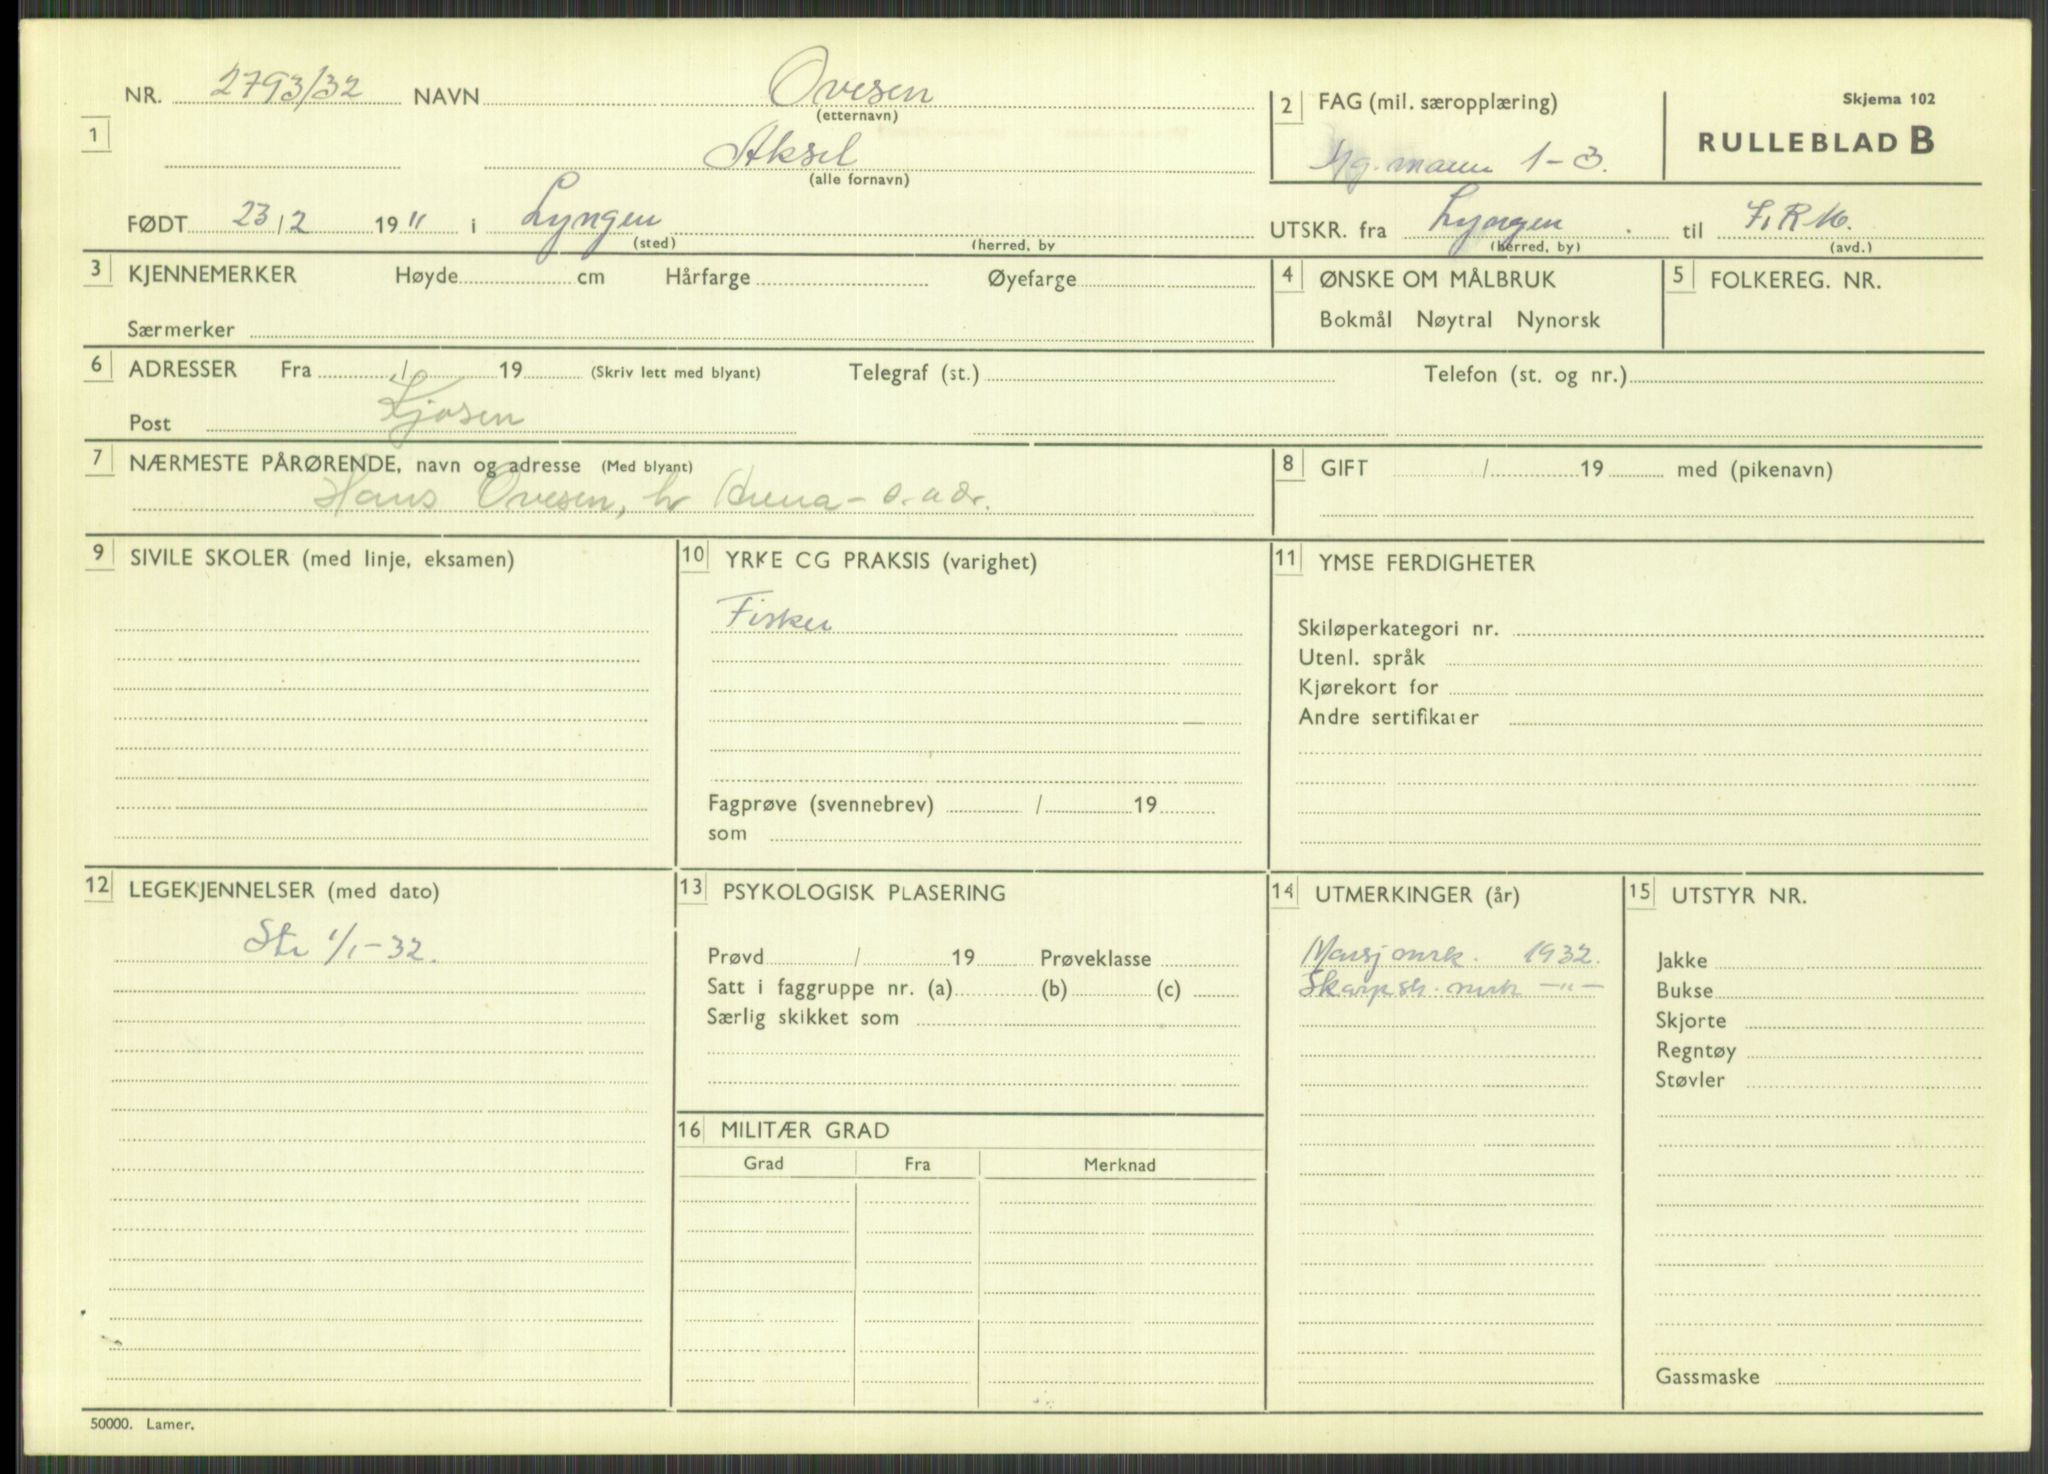 Skjema 102
RULLEBLAD B
1 NR. 2793/32 NAVN Ovesen
(etternavn)
Aksel
(alle fornavn)
FØDT 23/2 1911 i Lyngen
(sted) (herred, by
2 FAG (mil. særopplæring)
Mg. mann 1-3.
UTSKR. fra Lyngen til
(herred, by) (avd.)
3 KJENNEMERKER Høyde cm Hårfarge Øyefarge
Særmerker
4 ØNSKE OM MÅLBRUK
Bokmål Nøytral Nynorsk
5 FOLKEREG. NR.
6 ADRESSER Fra / 19 (Skriv lett med blyant) Telegraf (st.) Telefon (st. og nr.)
Post Kjosen
7 NÆRMESTE PÅRØRENDE, navn og adresse (Med blyant)
Hans Ovesen,
8 GIFT / 19 med (pikenavn)
9 SIVILE SKOLER (med linje, eksamen)
10 YRKE CG PRAKSIS (varighet)
Fisker
Fagprøve (svennebrev) / 19
som
11 YMSE FERDIGHETER
Skiløperkategori nr.
Utenl. språk
Kjørekort for
Andre sertifikater
12 LEGEKJENNELSER (med dato)
Str 1/1-32.
13 PSYKOLOGISK PLASERING
Prøvd / 19 Prøveklasse
Satt i faggruppe nr. (a) (b) (c)
Særlig skikket som
14 UTMERKINGER (år)
Marsjmrk. 1932.
Skarpsk. mrk -"-
15 UTSTYR NR.
Jakke
Bukse
Skjorte
Regntøy
Støvler
Gassmaske
16 MILITÆR GRAD
Grad Fra Merknad
50000. Lamer.